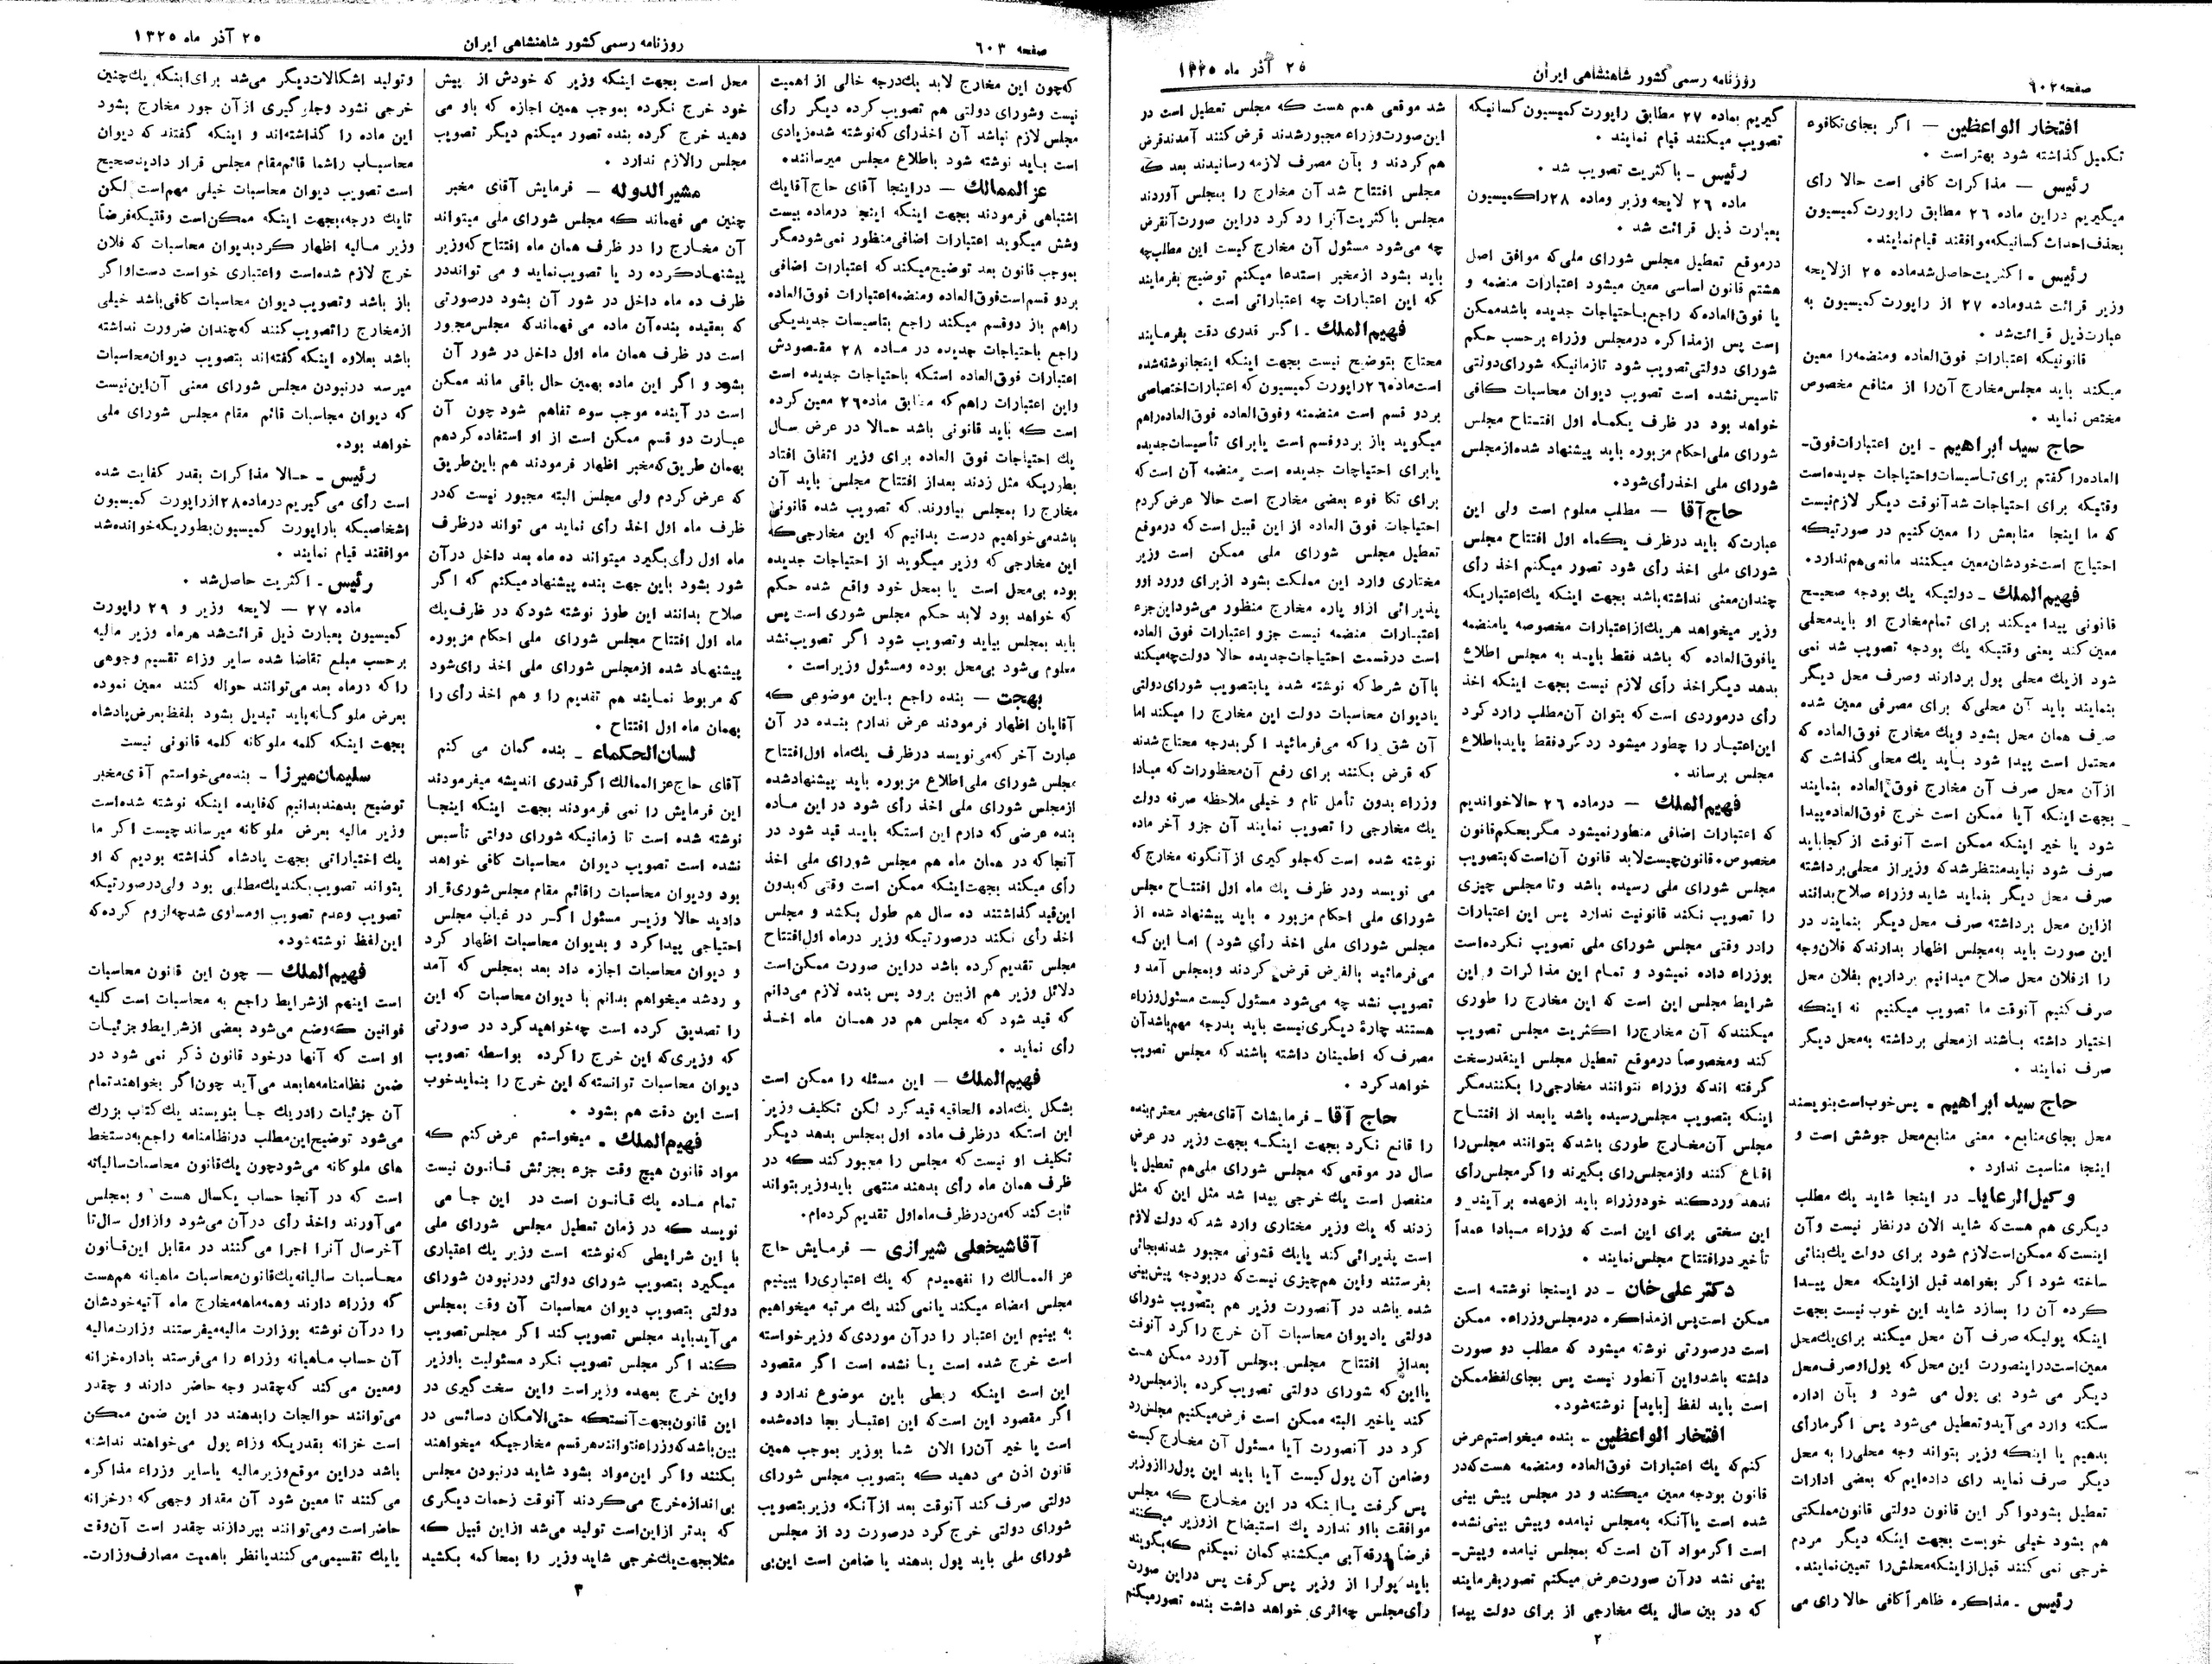 صفحه ۶۰۲
روزنامه رسمی کشور شاهنشاهی ایران
۲۵ آذر ماه ۱۳۲۵
افتخار الواعظین — اگر بجای تکافوء
تکمیل گذاشته شود بهتر است .
رئیس — مذاکرات کافی است حالا رأی
میگیریم دراین ماده ۲۶ مطابق راپورت کمیسیون
بحذف احداث کسانیکه موافقند قیام نمایند.
رئیس ـ اکثریت حاصل شد ماده ۲۵ ازلایحه
وزیر قرائت شد و ماده ۲۷ از راپورت کمیسیون به
عبارت ذیل قرائت شد .
قانونیکه اعتبارات فوق العاده ومنضمه را معین
میکند باید مجلس مخارج آن را از منافع مخصوص
مختص نماید .
حاج سید ابراهیم ـ این اعتبارات فوق‌ـ
العاده را گفتم برای تاسیسات واحتیاجات جدیده است
وقتیکه برای احتیاجات شد آنوقت دیگر لازم نیست
که ما اینجا منابعش را معین کنیم در صورتیکه
احتیاج است خودشان معین میکنند مانعی هم ندارد.
فهیم الملك ـ دولتیکه یك بودجه صحیح
قانونی پیدا میکند برای تمام مخارج او باید محلی
معین کند یعنی وقتیکه یك بودجه تصویب شد نمی
شود ازیك محلی پول بردارند وصرف محل دیگر
بنمایند باید آن محلی که برای مصرفی معین شده
صرف همان محل بشود ویك مخارج فوق العاده که
محتمل است پیدا شود باید یك محلی گذاشت که
ازآن محل صرف آن مخارج فوق العاده بنمایند
بجهت اینکه آیا ممکن است خرج فوق العاده پیدا
شود یا خیر اینکه ممکن است آنوقت از کجا باید
صرف شود نباید منتظر شد که وزیر از محلی برداشته
صرف محل دیگر بنماید شاید وزراء صلاح بدانند
ازاین محل برداشته صرف محل دیگر بنمایند در
این صورت باید به مجلس اظهار بدارند که فلان وجه
را ازفلان محل صلاح میدانیم برداریم بفلان محل
صرف کنیم آنوقت ما تصویب میکنیم نه اینکه
اختیار داشته باشند ازمحلی برداشته به محل دیگر
صرف نمایند .
حاج سید ابراهیم ـ پس خوب است بنویسند
محل بجای منابع. معنی منابع محل جوشش است و
اینجا مناسبت ندارد .
وکیل الرعایا ـ در اینجا شاید یك مطلب
دیگری هم هست که شاید الان در نظر نیست وآن
اینست که ممکن است لازم شود برای دولت یك بنائی
ساخته شود اگر بخواهد قبل ازاینکه محل پیدا
کرده آن را بسازد شاید این خوب نیست بجهت
اینکه پولیکه صرف آن محل میکند برای یك محل
معین است دراینصورت این محل که پول او صرف محل
دیگر می شود بی پول می شود و بآن اداره
سکته وارد می آید وتعطیل می شود پس اگر ما رأی
بدهیم یا اینکه وزیر بتواند وجه محلی را به محل
دیگر صرف نماید رأی داده ایم که بعضی ادارات
تعطیل بشود واگر این قانون دولتی قانون مملکتی
هم بشود خیلی خوبست بجهت اینکه دیگر مردم
خرجی نمی کنند قبل ازاینکه محلش را تعیین نمایند.
رئیس ـ مذاکره ظاهراً کافی حالا رای می
گیریم بماده ۲۷ مطابق راپورت کمیسیون کسانیکه
تصویب میکنند قیام نمایند .
رئیس ـ باکثریت تصویب شد .
ماده ۲۶ لایحه وزیر وماده ۲۸ راکمیسیون
بعبارت ذیل قرائت شد .
درموقع تعطیل مجلس شورای ملی که موافق اصل
هشتم قانون اساسی معین میشود اعتبارات منضمه و
یا فوق العاده که راجع باحتیاجات جدیده باشد ممکن
است پس ازمذاکره درمجلس وزراء برحسب حکم
شورای دولتی تصویب شود تازمانیکه شورای دولتی
تاسیس نشده است تصویب دیوان محاسبات کافی
خواهد بود در ظرف یکماه اول افتتاح مجلس
شورای ملی احکام مزبوره باید پیشنهاد شده ازمجلس
شورای ملی اخذ رأی شود.
حاج آقا — مطلب معلوم است ولی این
عبارت که باید درظرف یك ماه اول افتتاح مجلس
شورای ملی اخذ رأی شود تصور میکنم اخذ رأی
چندان معنی نداشته باشد بجهت اینکه یك اعتباریکه
وزیر میخواهد هریك از اعتبارات مخصوصه یا منضمه
یا فوق العاده که باشد فقط باید به مجلس اطلاع
بدهد دیگر اخذ رأی لازم نیست بجهت اینکه اخذ
رأی درموردی است که بتوان آن مطلب را رد کرد
این اعتبار را چطور میشود رد کرد فقط باید باطلاع
مجلس برساند .
فهیم الملك — درماده ۲۶ حالا خواندیم
که اعتبارات اضافی منظور نمیشود مگر بحکم قانون
مخصوص. قانون چیست لابد قانون آن است که بتصویب
مجلس شورای ملی رسیده باشد وتا مجلس چیزی
را تصویب نکند قانونیت ندارد پس این اعتبارات
رادر وقتی مجلس شورای ملی تصویب نکرده است
بوزراء داده نمیشود و تمام این مذاکرات و این
شرایط مجلس این است که این مخارج را طوری
میکنند که آن مخارج را اکثریت مجلس تصویب
کند ومخصوصاً درموقع تعطیل مجلس اینقدر سخت
گرفته اند که وزراء نتوانند مخارجی را بکنند مگر
اینکه بتصویب مجلس رسیده باشد یا بعد از افتتاح
مجلس آن مخارج طوری باشد که بتوانند مجلس را
اقناع کنند وازمجلس رای بگیرند واگر مجلس رأی
ندهد ورد کند خود وزراء باید ازعهده برآیند و
این سختی برای این است که وزراء مبادا عمداً
تأخیر درافتتاح مجلس نمایند .
دکتر علی خان ـ در اینجا نوشته است
ممکن است پس ازمذاکره درمجلس وزراء. ممکن
است درصورتی نوشته میشود که مطلب دو صورت
داشته باشد واین آنطور نیست پس بجای لفظ ممکن
است باید لفظ [باید] نوشته شود.
افتخار الواعظین ـ بنده میخواستم عرض
کنم که یك اعتبارات فوق العاده ومنضمه هست که در
قانون بودجه معین میکند و در مجلس پیش بینی
شده است یا آنکه به مجلس نیامده وپیش بینی نشده
است اگر مواد آن است که بمجلس نیامده وپیش‌ـ
بینی نشد درآن صورت عرض میکنم تصور بفرمایند
که در بین سال یك مخارجی از برای دولت پیدا
شد موقعی هم هست که مجلس تعطیل است در
این صورت وزراء مجبور شدند قرض کنند آمدند قرض
هم کردند و بآن مصرف لازمه رسانیدند بعد که
مجلس افتتاح شد آن مخارج را بمجلس آوردند
مجلس با کثریت آنرا رد کرد دراین صورت آن قرض
چه می شود مسئول آن مخارج کیست این مطلب چه
باید بشود ازمخبر استدعا میکنم توضیح بفرمایند
که این اعتبارات چه اعتباراتی است .
فهیم الملك ـ اگر قدری دقت بفرمایند
محتاج بتوضیح نیست بجهت اینکه اینجا نوشته شده
است ماده ۲۶ راپورت کمیسیون که اعتبارات اختصاصی
بر دو قسم است منضمنه وفوق العاده فوق العاده راهم
میگوید باز بردوقسم است یا برای تأسیسات جدیده
یا برای احتیاجات جدیده است . منضمه آن است که
برای تکافوء بعضی مخارج است حالا عرض کردم
احتیاجات فوق العاده از این قبیل است که درموقع
تعطیل مجلس شورای ملی ممکن است وزیر
مختاری وارد این مملکت بشود ازبرای ورود او و
پذیرائی ازاو پاره مخارج منظور می شود این جزء
اعتبارات منضمه نیست جزو اعتبارات فوق العاده
است درقسمت احتیاجات جدیده حالا دولت چه میکند
با آن شرط که نوشته شده یا بتصویب شورای دولتی
یادیوان محاسبات دولت این مخارج را میکند اما
آن شق را که می فرمائید اگر بدرجه محتاج شدند
که قرض بکنند برای رفع آن محظورات که مبادا
وزراء بدون تأمل تام و خیلی ملاحظه صرفه دولت
یك مخارجی را تصویب نمایند آن جزو آخر ماده
نوشته شده است که جلوگیری از آنگونه مخارج که
می نویسد ودر ظرف یك ماه اول افتتاح مجلس
شورای ملی احکام مزبوره باید پیشنهاد شده از
مجلس شورای ملی اخذ رأی شود) اما این که
می فرمائید بالفرض قرض کردند وبمجلس آمد و
تصویب نشد چه می شود مسئول کیست مسئول وزراء
هستند چارهٔ دیگری نیست باید بدرجه مهم باشد آن
مصرف که اطمینان داشته باشند که مجلس تصویب
خواهد کرد .
حاج آقا ـ فرمایشات آقای مخبر محترم بنده
را قانع نکرد بجهت اینکه بجهت وزیر در عرض
سال در موقعی که مجلس شورای ملی هم تعطیل یا
منفصل است یك خرجی پیدا شد مثل این که مثل
زدند که یك وزیر مختاری وارد شد که دولت لازم
است پذیرائی کند یایك قشونی مجبور شدند بجائی
بفرستند واین هم چیزی نیست که در بودجه پیش بینی
شده باشد در آنصورت وزیر هم بتصویب شورای
دولتی یادیوان محاسبات آن خرج را کرد آنوقت
بعد از افتتاح مجلس بمجلس آورد ممکن هست
یا این که شورای دولتی تصویب کرده باز مجلس رد
کند یا خیر البته ممکن است فرض میکنیم مجلس رد
کرد در آنصورت آیا مسئول آن مخارج کیست
وضامن آن پول کیست آیا باید این پول را از وزیر
پس گرفت یا اینکه در این مخارج که مجلس
موافقت با او ندارد یك استیضاح ازوزیر میکنند
فرضاً ورقه آبی میکشند گمان نمیکنم که بگویند
باید پولرا از وزیر پس گرفت پس دراین صورت
رأی مجلس چه اثری خواهد داشت بنده تصور میکنم
۲
صفحه ۶۰۳
روزنامه رسمی کشور شاهنشاهی ایران
۲۵ آذر ماه ۱۳۲۵
که چون این مخارج لابد یك درجه خالی از اهمیت
نیست وشورای دولتی هم تصویب کرده دیگر رأی
مجلس لازم نباشد آن اخذ رأی که نوشته شده زیادی
است باید نوشته شود باطلاع مجلس میرسانند.
عز الممالك — دراینجا آقای حاج آقا یك
اشتباهی فرمودند بجهت اینکه اینجا درماده بیست
وشش میگوید اعتبارات اضافی منظور نمی شود مگر
بموجب قانون بعد توضیح میکند که اعتبارات اضافی
بر دو قسم است فوق العاده ومنضمه اعتبارات فوق العاده
راهم باز دوقسم میکند راجع بتاسیسات جدید یکی
راجع باحتیاجات جدیده در ماده ۲۸ مقصودش
اعتبارات فوق العاده استکه باحتیاجات جدیده است
واین اعتبارات راهم که مطابق ماده ۲۶ معین کرده
است که باید قانونی باشد حالا در عرض سال
یك احتیاجات فوق العاده برای وزیر اتفاق افتاد
بطوریکه مثل زدند بعد از افتتاح مجلس باید آن
مخارج را بمجلس بیاورند که تصویب شده قانونی
باشد می خواهیم درست بدانیم که این مخارجی که
این مخارجی که وزیر میگوید از احتیاجات جدیده
بوده بی محل است یا بمحل خود واقع شده حکم
که خواهد بود لابد حکم مجلس شوری است پس
باید بمجلس بیاید وتصویب شود اگر تصویب نشد
معلوم می شود بی محل بوده ومسئول وزیر است .
بهجت — بنده راجع باین موضوعی که
آقایان اظهار فرمودند عرض ندارم بنده در آن
عبارت آخر که می نویسد درظرف یك ماه اول افتتاح
مجلس شورای ملی اطلاع مزبوره باید پیشنهاد شده
ازمجلس شورای ملی اخذ رأی شود در این ماده
بنده عرضی که دارم این استکه باید قید شود در
آنجا که در همان ماه هم مجلس شورای ملی اخذ
رأی میکند بجهت اینکه ممکن است وقتی که بدون
این قید گذاشتند ده سال هم طول بکشد و مجلس
اخذ رأی نکند درصورتیکه وزیر درماه اول افتتاح
مجلس تقدیم کرده باشد دراین صورت ممکن است
دلائل وزیر هم ازبین برود پس بنده لازم می دانم
که قید شود که مجلس هم در همان ماه اخذ
رأی نماید .
فهیم الملك — این مسئله را ممکن است
بشکل یك ماده الحاقیه قید کرد لکن تکلیف وزیر
این استکه درظرف ماده اول بمجلس بدهد دیگر
تکلیف او نیست که مجلس را مجبور کند که در
ظرف همان ماه رأی بدهند منتهی باید وزیر بتواند
ثابت کند که من درظرف ماه اول تقدیم کرده ام.
آقا شیخعلی شیرازی — فرمایش حاج
عز الممالك را نفهمیدم که یك اعتباری را ببینیم
مجلس امضاء میکند یا نمی کند یك مرتبه میخواهیم
به بینیم این اعتبار را درآن موردی که وزیر خواسته
است خرج شده است یا نشده است اگر مقصود
این است اینکه ربطی باین موضوع ندارد و
اگر مقصود این است که این اعتبار بجا داده شده
است یا خیر آن را الان شما بوزیر بموجب همین
قانون اذن می دهید که بتصویب مجلس شورای
دولتی صرف کند آنوقت بعد ازآنکه وزیر بتصویب
شورای دولتی خرج کرد درصورت رد از مجلس
شورای ملی باید پول بدهند یا ضامن است این بی
محل است بجهت اینکه وزیر که خودش از پیش
خود خرج نکرده بموجب همین اجازه که باو می
دهید خرج کرده بنده تصور میکنم دیگر تصویب
مجلس رالازم ندارد .
مشیر الدوله — فرمایش آقای مخبر
چنین می فهماند که مجلس شورای ملی میتواند
آن مخارج را در ظرف همان ماه افتتاح که وزیر
پیشنهاد کرده رد یا تصویب نماید و می تواند در
ظرف ده ماه داخل در شور آن بشود درصورتی
که بعقیده بنده آن ماده می فهماند که مجلس مجبور
است در ظرف همان ماه اول داخل در شور آن
بشود و اگر این ماده بهمین حال باقی ماند ممکن
است در آینده موجب سوء تفاهم شود چون آن
عبارت دو قسم ممکن است از او استفاده کرد هم
بهمان طریق که مخبر اظهار فرمودند هم باین طریق
که عرض کردم ولی مجلس البته مجبور نیست که در
ظرف ماه اول اخذ رأی نماید می تواند درظرف
ماه اول رأی بگیرد میتواند ده ماه بعد داخل درآن
شور بشود باین جهت بنده پیشنهاد میکنم که اگر
صلاح بدانند این طور نوشته شود که در ظرف یك
ماه اول افتتاح مجلس شورای ملی احکام مزبوره
پیشنهاد شده ازمجلس شورای ملی اخذ رای شود
که مربوط نمایند هم تقدیم را و هم اخذ رأی را
بهمان ماه اول افتتاح .
لسان الحکماء ـ بنده گمان می کنم
آقای حاج عز الممالك اگر قدری اندیشه میفرمودند
این فرمایش را نمی فرمودند بجهت اینکه اینجا
نوشته شده است تا زمانیکه شورای دولتی تأسیس
نشده است تصویب دیوان محاسبات کافی خواهد
بود ودیوان محاسبات راقائم مقام مجلس شوری قرار
دادید حالا وزیر مسئول اگر در غیاب مجلس
احتیاجی پیدا کرد و بدیوان محاسبات اظهار کرد
و دیوان محاسبات اجازه داد بعد بمجلس که آمد
و رد شد میخواهم بدانم با دیوان محاسبات که این
را تصدیق کرده است چه خواهید کرد در صورتی
که وزیری که این خرج را کرده بواسطه تصویب
دیوان محاسبات توانسته که این خرج را بنماید خوب
است این دقت هم بشود .
فهیم الملك ـ میخواستم عرض کنم که
مواد قانون هیچ وقت جزء بجزئش قانون نیست
تمام ماده یك قانون است در این جا می
نویسد که در زمان تعطیل مجلس شورای ملی
با این شرایطی که نوشته است وزیر یك اعتباری
میگیرد بتصویب شورای دولتی ودرنبودن شورای
دولتی بتصویب دیوان محاسبات آن وقت بمجلس
می آید باید مجلس تصویب کند اگر مجلس تصویب
کند اگر مجلس تصویب نکرد مسئولیت باوزیر
واین خرج بعهده وزیر است واین سخت گیری در
این قانون بجهت آنستکه حتی الامکان دسائسی در
بین باشد که وزراء نتوانند هر قسم مخارجیکه میخواهند
بکنند واگر این مواد بشود شاید درنبودن مجلس
بی اندازه خرج می کردند آنوقت زحمات دیگری
که بدتر ازاین است تولید می شد ازاین قبیل که
مثلا بجهت یك خرجی شاید وزیر را بمحاکمه بکشید
وتولید اشکالات دیگر می شد برای اینکه یك چنین
خرجی نشود وجلوگیری ازآن جور مخارج بشود
این ماده را گذاشته اند و اینکه گفتند که دیوان
محاسبات راشما قائم مقام مجلس قرار دادید صحیح
است تصویب دیوان محاسبات خیلی مهم است لکن
تایك درجه، بجهت اینکه ممکن است وقتیکه فرضاً
وزیر مالیه اظهار کرد بدیوان محاسبات که فلان
خرج لازم شده است واعتباری خواست دست اواگر
باز باشد وتصویب دیوان محاسبات کافی باشد خیلی
ازمخارج راتصویب کنند که چندان ضرورت نداشته
باشد بعلاوه اینکه گفته اند بتصویب دیوان محاسبات
میرسد درنبودن مجلس شورای معنی آن این نیست
که دیوان محاسبات قائم مقام مجلس شورای ملی
خواهد بود.
رئیس ـ حالا مذاکرات بقدر کفایت شده
است رأی می گیریم درماده ۲۸ ازراپورت کمیسیون
اشخاصیکه باراپورت کمیسیون بطوریکه خوانده شد
موافقند قیام نمایند .
رئیس ـ اکثریت حاصل شد .
ماده ۲۷ — لایحه وزیر و ۲۹ راپورت
کمیسیون بعبارت ذیل قرائت شد هرماه وزیر مالیه
برحسب مبلغ تقاضا شده سایر وزراء تقسیم وجوهی
را که درماه بعد می توانند حواله کنند معین نموده
بعرض ملوکانه باید تبدیل بشود بلفظ بعرض پادشاه
بجهت اینکه کلمه ملوکانه کلمه قانونی نیست
سلیمان میرزا ـ بنده می خواستم آقای مخبر
توضیح بدهند بدانیم که فایده اینکه نوشته شده است
وزیر مالیه بعرض ملوکانه میرساند چیست اگر ما
یك اختیاراتی بجهت پادشاه گذاشته بودیم که او
بتواند تصویب بکند یك مطلبی بود ولی درصورتیکه
تصویب وعدم تصویب او مساوی شد چه لزوم کرده که
این لفظ نوشته شود.
فهیم الملك — چون این قانون محاسبات
است اینهم ازشرایط راجع به محاسبات است کلیه
قوانین که وضع می شود بعضی ازشرایط وجزئیات
او است که آنها درخود قانون ذکر نمی شود در
ضمن نظامنامه ها بعد می آید چون اگر بخواهند تمام
آن جزئیات رادر یك جا بنویسند یك کتاب بزرك
می شود توضیح این مطلب درنظامنامه راجع به دستخط
های ملوکانه می شود چون یك قانون محاسبات سالیانه
است که در آنجا حساب یکسال هست و بمجلس
می آورند واخذ رأی درآن می شود وازاول سال تا
آخر سال آنرا اجرا می کنند در مقابل این قانون
محاسبات سالیانه یك قانون محاسبات ماهیانه هم هست
که وزراء دارند وهمه ماهه مخارج ماه آتیه خودشان
را درآن نوشته بوزارت مالیه میفرستند وزارت مالیه
آن حساب ماهیانه وزراء را می فرستد باداره خزانه
ومعین می کند که چقدر وجه حاضر دارند و چقدر
می توانند حوالجات رابدهند در این ضمن ممکن
است خزانه بقدریکه وزراء پول می خواهند نداشته
باشد دراین موقع وزیر مالیه باسایر وزراء مذاکره
می کنند تا معین شود آن مقدار وجهی که درخزانه
حاضر است ومی توانند بپردازند چقدر است آن وقت
یایك تقسیمی می کنند یا نظر باهمیت مصارف وزارت‌ـ
۳